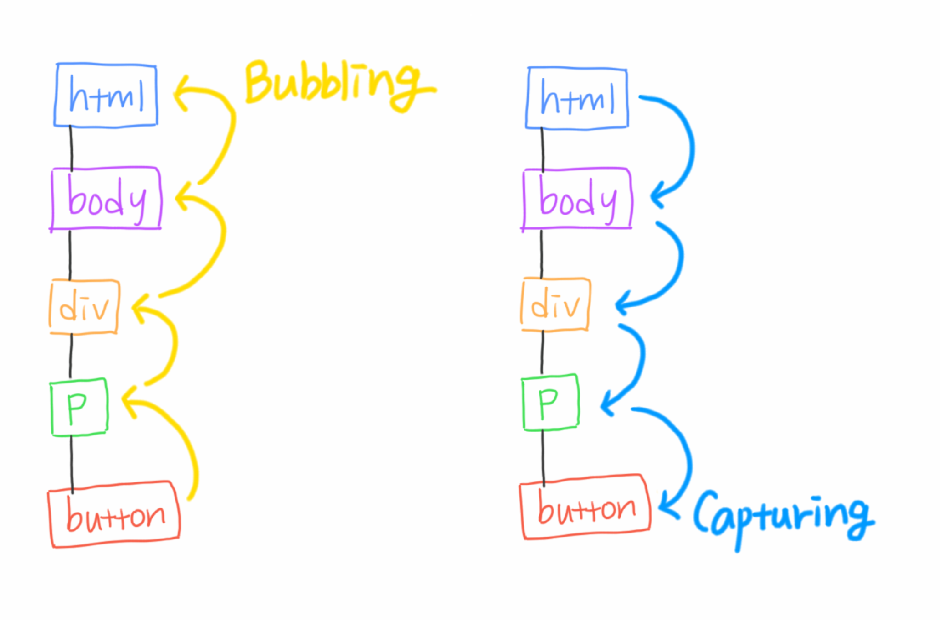 Bubbling
html
body
div
P
button
html
body
div
P
button
Capturing